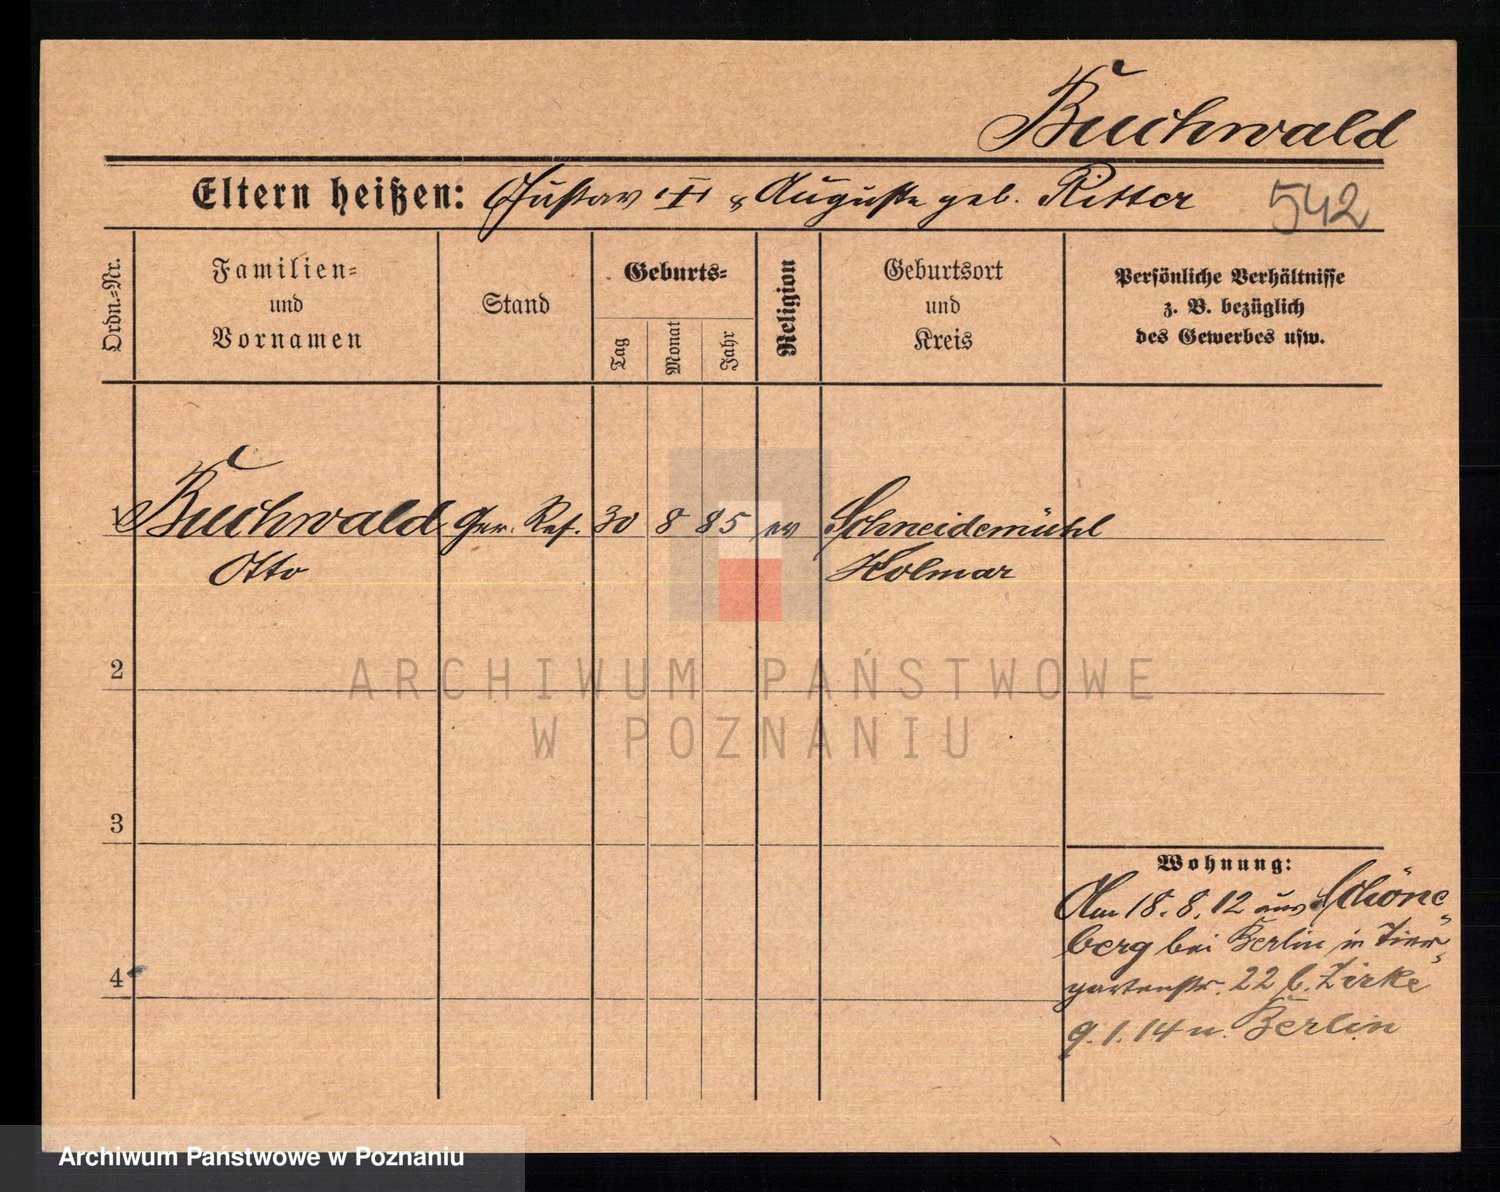 Buchwald
Eltern heißen: Gustav "†" & Auguste geb. Ritter 542
Ordn.=Nr.
Familien=
und
Vornamen
Stand
Geburts=
Tag
Monat
Jahr
Religion
Geburtsort
und
Kreis
Persönliche Verhältnisse
z. B. bezüglich
des Gewerbes usw.
1 Buchwald Ger. Ref. 30 8 85 ev Schneidemühl
Otto Kolmar
2
3
4
Wohnung:
Am 18.8.12 aus Schöne=
berg bei Berlin in Tier=
gartenstr. 22 b. Zirke
9.1.14 n. Berlin
ARCHIWUM PAŃSTWOWE
W POZNANIU
Archiwum Państwowe w Poznaniu